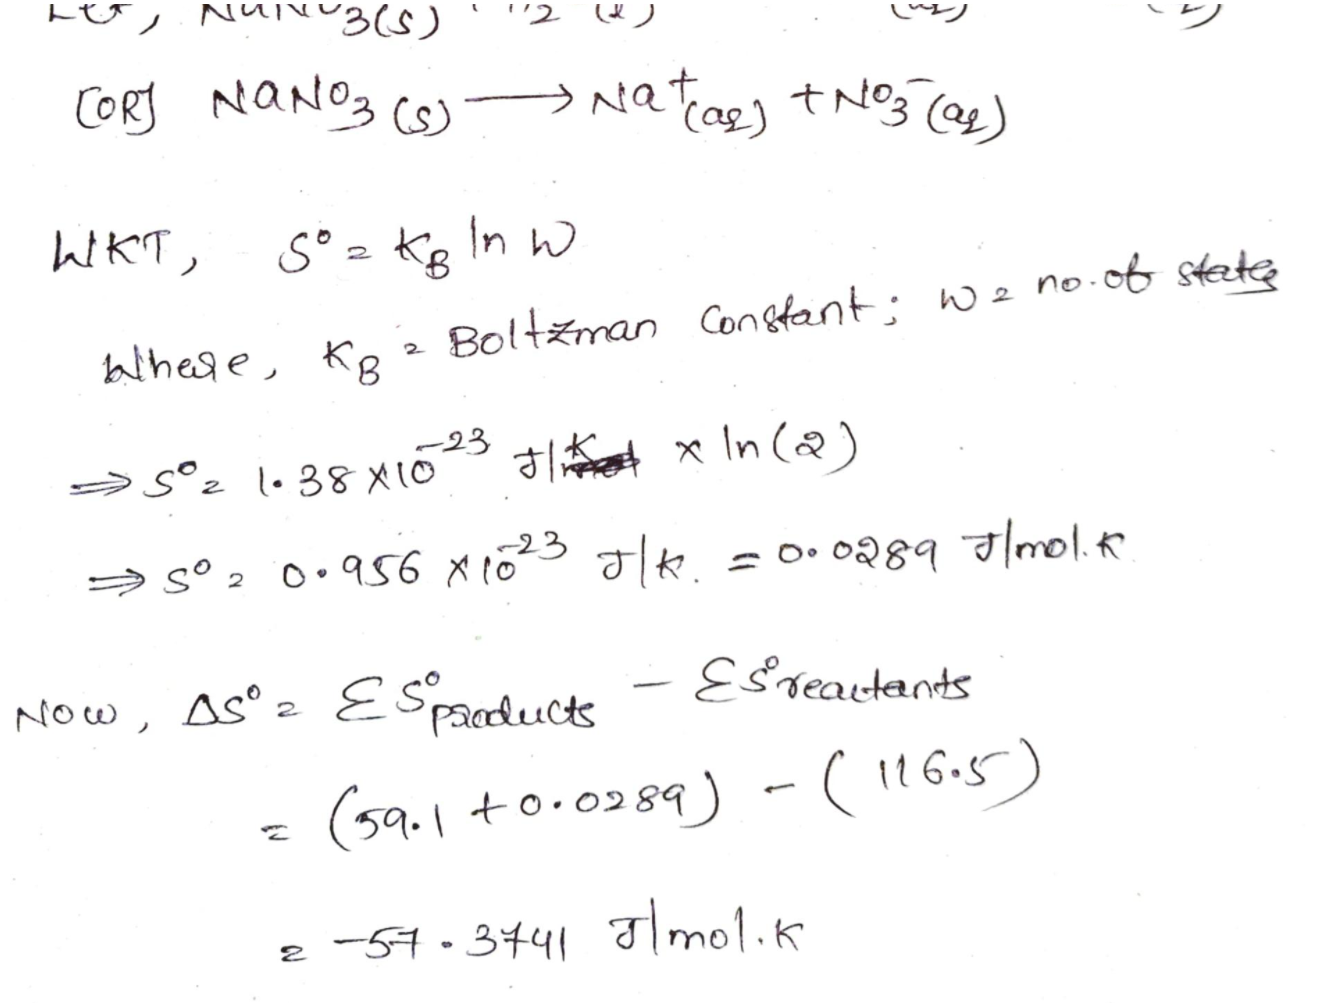 NaNO3(s)
[OR] NaNO3(s) → Na+(aq) + NO3-(aq)
WKT, S° = KB ln W
Where, KB = Boltzman Constant; W = no. of states
⇒ S° = 1.38 × 10^-23 J/K × ln(2)
⇒ S° = 0.956 × 10^-23 J/K. = 0.0289 J/mol.K
Now, ΔS° = ΣS°products - ΣS°reactants
= (59.1 + 0.0289) - (116.5)
= -57.3741 J/mol.K